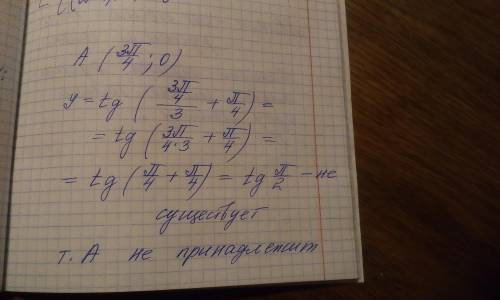 A (3π/4; 0)
y = tg ((3π/4)/3 + π/4) =
= tg (3π/(4·3) + π/4) =
= tg (π/4 + π/4) = tg π/2 – не
существует
т. А не принадлежит